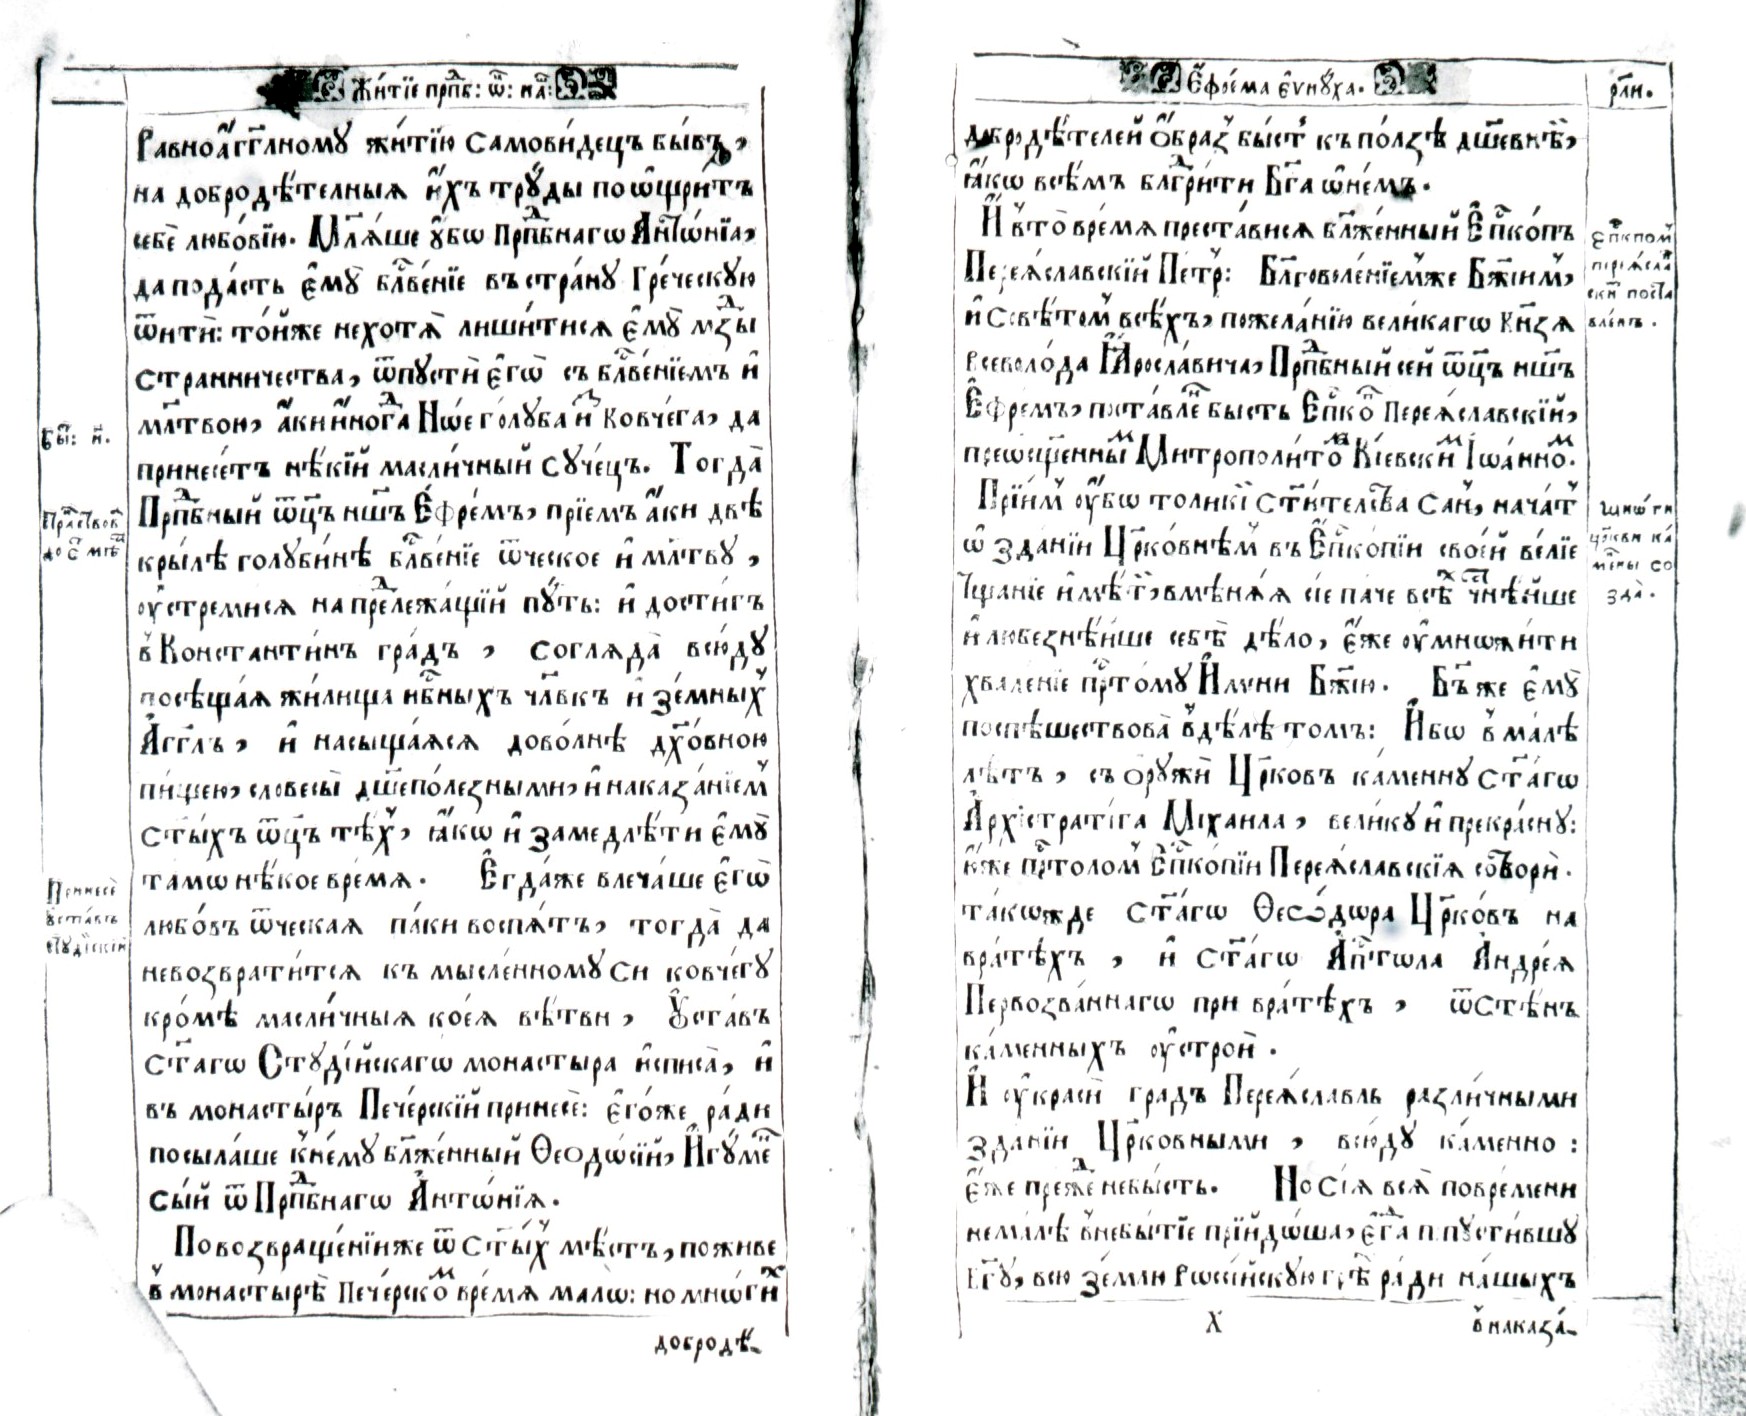 Житїе прпⷣб: ѿ: на:
Равноа҆́гг҃лному житїю самови́децъ бы́въ,
на добродѣ́телныя и҆́хъ трꙋ́ды поѡщри́тъ
себѐ любо́вїю. Мл҃ѧ́ше ᲂу҆́бѡ Прпⷣбнагѡ Анто́нїа,
да пода́стъ є҆мꙋ̀ блⷭ҇ве́нїе въ стра́нꙋ Гре́ческꙋю
ѿитѝ: то́йже не хотѧ̀ лиши́тисѧ є҆мꙋ̀ мзⷣы
стра́нничества, ѿпꙋстѝ є҆гѡ̀ съ блⷭ҇ве́нїемъ и҆
мл҃твою, а҆́ки и҆ногⷣа Нѡ́е го́лꙋба и҆з̾ ковче́га, да
принесе́тъ нѣ́кїй масли́чный сꙋче́цъ. Тогда̀
Прпⷣбный ѿц҃ъ нш҃ъ Є҆фре́мъ, прїе́мъ а҆́ки двѣ̀
кры́лѣ голꙋби́нѣ блⷭ҇ве́нїе ѿческое и҆ мл҃твꙋ,
ᲂу҆стреми́сѧ на прⷣележа́щїй пꙋ́ть: и҆ дости́гъ
в̾ Константи́нъ гра́дъ, согляда̀ всю́дꙋ
посѣща́ѧ жи́лища нбⷭ҇ныхъ чл҃вкъ и҆ зе́мныхъ
А҆́гг҃лъ, и҆ насыща́ѧсѧ дово́лнѣ дꙋхо́вною
пи́щею, словесы̀ дш҃епо́лезными, и҆ наказа́нїемъ
ст҃ы́хъ ѿц҃ъ тѣ́хъ, ꙗ҆́кѡ и҆ замедлѣ́ти є҆мꙋ̀
та́мѡ нѣ́кое вре́мѧ. Є҆гда́же влеча́ше є҆гѡ̀
любо́въ ѿческая па́ки воспѧ́тъ, тогда̀ да
не возврати́тсѧ къ мы́сленномꙋ си ковче́гꙋ
кро́мѣ масли́чныѧ ко́еѧ вѣ́тви, Оу҆ста́въ
ст҃а́гѡ Стꙋді́йскагѡ монастыра̀ и҆списа̀, и҆
въ монасты́ръ Пече́рскїй принесѐ: є҆го́же ра́ди
посыла́ше к̾не́мꙋ бл҃же́нный Ѳеодѡ́сїй, И҆гꙋ́менъ
сы́й ѿ Прпⷣбнагѡ А҆нтѡ́нїѧ.
По возвраще́нїи же ѿ ст҃ы́хъ мѣ́стъ, поживе
в̾ монастырѣ̀ Пече́рскомъ вре́мѧ ма́лѡ: но мнѡ́гихъ
доброде́-
бы̑т: и҃.
Пра́вствовъ
до ст҃ мѣⷭ҇
Принесѐ
ᲂу҆ста́въ
стꙋді́йскїй
Є҆фре́ма є҆ѵнꙋ́ха.
рл҃и.
добродѣ́телей О҆́бразъ бы́сть къ по́лзѣ дш҃е́внѣй,
ꙗ҆́кѡ всѣ́мъ блгⷣри́ти Бг҃а ѡ҆не́мъ.
И҆ в̾то̀ вре́мѧ преста́висѧ бл҃же́нный Є҆пⷭ҇ко́пъ
Переѧ́славскїй Пе́тръ: Бл҃говоле́нїемъже Бж҃іимъ,
и҆ совѣ́томъ всѣ́хъ, по жела́нїю вели́кагѡ кн҃зѧ
Всеволо́да Ꙗ҆росла́вича, Прпⷣбный се́й ѿц҃ъ нш҃ъ
Є҆фре́мъ, поста́вленъ бы́сть Є҆пⷭ҇копъ Переѧ́славскїй,
преѡсщ҃е́ннымъ Митрополи́томъ Кі́евскимъ Іѡа́нномъ.
Прїи́мъ ᲂу҆́бѡ толи́кїй ст҃и́телства са́нъ, нача́тъ
ѡ҆ зда́нїи Цр҃ко́внѣмъ въ Є҆пⷭ҇ко́пїи свое́й ве́лїе
тща́нїе и҆мѣ́ти, вмѣнѧ́ѧ сїе па́че всѣ́хъ чⷭ҇нѣ́йше
и҆ любезнѣ́йше себѣ̀ дѣ́ло, є҆́же ᲂу҆мно́жити
хвале́нїе прⷭ҇то́мꙋ И҆́мени Бж҃їю. Бг҃ъ же є҆мꙋ̀
поспѣшествова̀ в̾дѣ́лѣ то́мъ: И҆́бѡ в̾ ма́лѣ
лѣ́тъ, съорꙋжѝ Цр҃ковъ ка́меннꙋ ст҃а́гѡ
А҆рхїстрати́га Міхаи́ла, вели́кꙋ и҆ прекра́снꙋ:
ю҆́же прⷭ҇толомъ Є҆пⷭ҇ко́пїи Переѧ́славскїѧ сотворѝ.
та́кѡжде ст҃а́гѡ Ѳео́дѡра Цр҃ко́въ на
врате́хъ, и҆ ст҃а́гѡ А҆пⷭ҇тола А҆ндре́ѧ
Первозва́ннагѡ при вра́тѣхъ, ѿ стѣ́нъ
ка́менныхъ ᲂу҆стро́и.
И҆ ᲂу҆красѝ гра́дъ Переѧ́славль разли́чными
зда́нїи Цр҃ко́вными, всю́дꙋ ка́менно:
є҆́же пре́жде не бы́сть. Но сїѧ̀ всѧ̀ по вре́мени
не ма́лѣ в̾небы́тїе прїидо́ша, є҆гдⷣа попꙋсти́вшꙋ
Бг҃ꙋ, всю̀ зе́млю Рѡссі́йскꙋю грѣ̑хъ ра́ди на́шихъ
Х
в̾ наказа́-
Є҆пⷭ҇кпомъ
переѧ́слав
скимъ поста
вленъ.
Мнѡ́ги
цр҃кви ка́
мены со
зда̀.